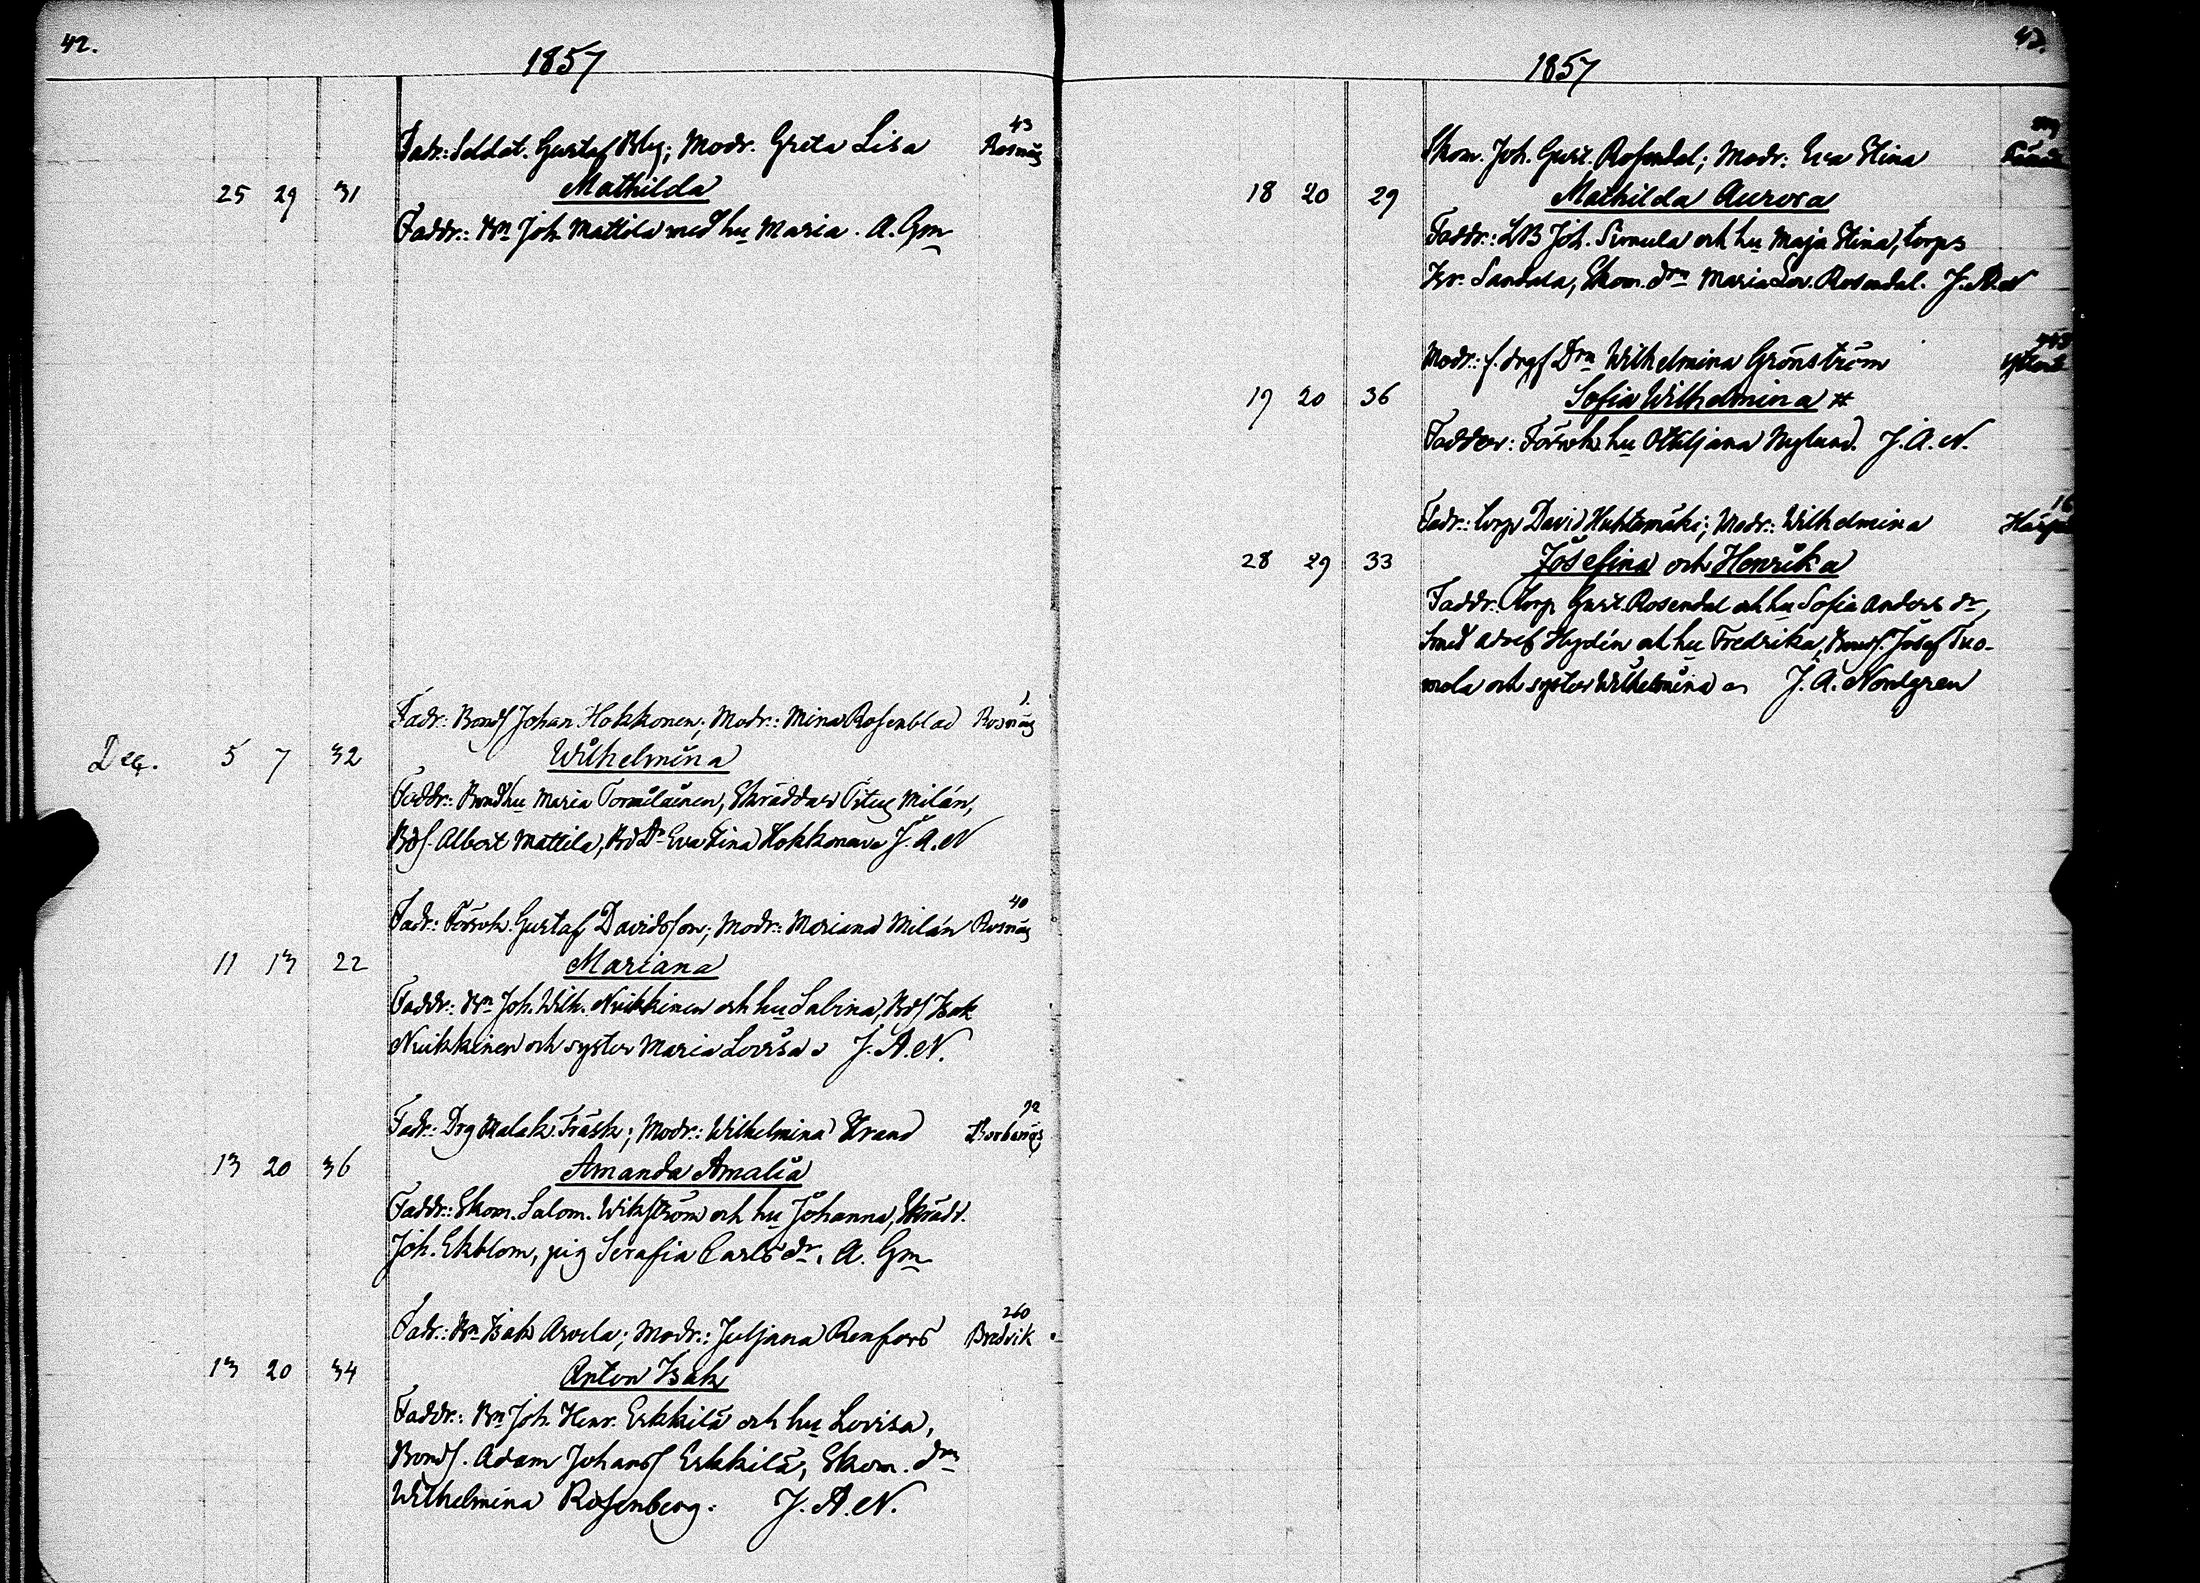 42.
1857
43
Fadr: Soldat. Gustaf Bly; Modr. Greta Lisa Rosnäs
25 29 31 Mathilda
Faddr: Bn Joh. Mattila med hu Maria. A. Gm
1.
Fadr: Bonds Johan Hokkonen; Modr: Mina Rosenblad Rosnäs
Dec. 5 7 32 Wilhelmina
Faddr: Bond hu Maria Tormiläinen, Skräddar Titus Milán,
Bds. Albert Mattila, Bd Dr Eva Stina Hokkonen J. A. N
40
Fadr: Gustaf Davidsson; Modr: Mariana Milán Rosnäs
11 13 22 Mariana
Faddr: Bn Joh. Wilh. Nuikkinen och hu Sabina, Bds Isak
Nuikkinen och syster Maria Lovisa J. A. N.
92
Fadr: Drg Malak. Träsk; Modr: Wilhelmina Strand
13 20 36 Amanda Amalia
Faddr: Skom. Salom. Wikström och hu Johanna, Skrädd.
Joh. Ekblom, pig Serafia Carls dr. A. Gm
260
Fadr: Bn Isak Arvela; Modr: Juljana Renfors Bredvik
13 20 34 Anton Isak
Faddr: Bn Joh. Henr. Erkkilä och hu Lovisa,
Bonds. Adam Johans Erkkilä, Skom. drn
Wilhelmina Rosenberg. J. A. N.
43.
1857
Skom. Joh. Gust. Rosendal; Modr: Eva Stina
18 20 29 Mathilda Aurora
Faddr: LB Joh. Simula och hu Maja Stina, torps
Hr. Sandala, Skom. drn Maria Lov. Rosendal. J. A. N
Modr: f. drgs Drn Wilhelmina Grönström
19 20 36 Sofia Wilhelmina #
Fadder: hu Ottiljana Nylund. J. A. N.
16
Fadr: torp David Huhtamäki; Modr: Wilhelmina
28 29 33 Josefina och Henrika
Faddr: torp Gust. Rosendal och hu Sofia Anders dr,
Smed Adolf Hydén och hu Fredrika, Bonds. Josef Tuo-
mola och syster Wilhelmina J. A. Nordgren